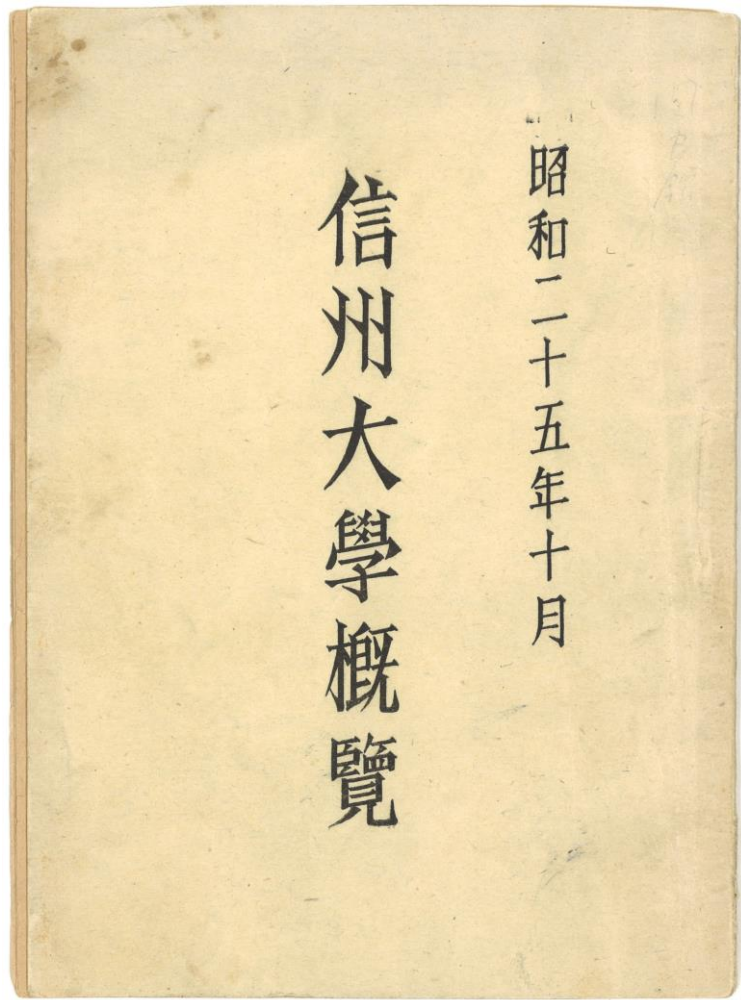 昭和二十五年十月
信州大學槪覽